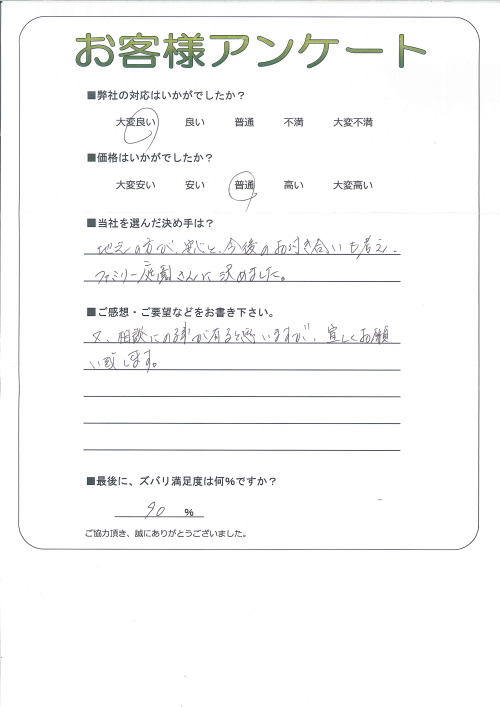 お客様アンケート
■弊社の対応はいかがでしたか？
大変良い 良い 普通 不満 大変不満
■価格はいかがでしたか？
大変安い 安い 普通 高い 大変高い
■当社を選んだ決め手は？
地元の方が、安心と、今後のお付き合いも考え、
ファミリー庭園さんに決めました。
■ご感想・ご要望などをお書き下さい。
又、相談にのる事が有ると思いますが、宜しくお願
い致します。
■最後に、ズバリ満足度は何％ですか？
90 ％
ご協力頂き、誠にありがとうございました。